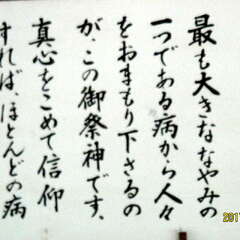 最も大きななやみの
一つである病から人々
をおまもり下さるの
が、この御祭神です、
真心をこめて信仰
すれば、ほとんどの病
201